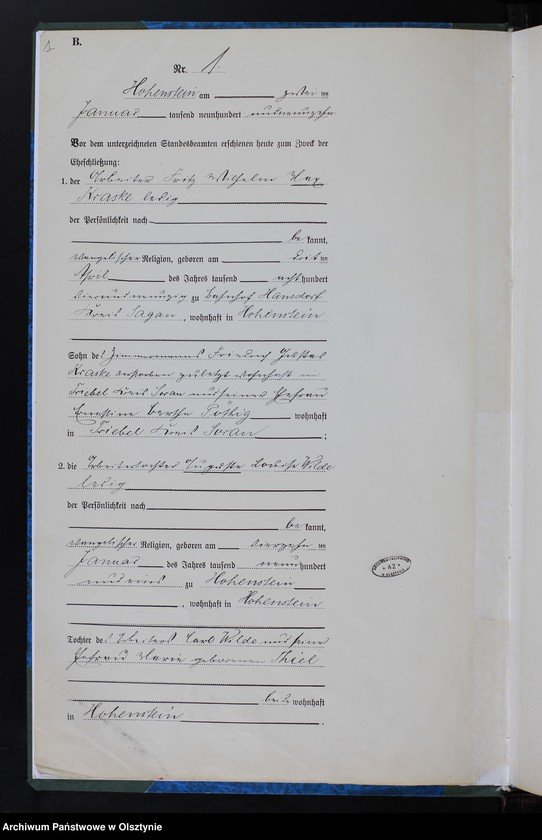 B.
Nr. 1.
Hohenstein am zwei ten
Januar tausend neunhundert
Vor dem unterzeichneten Standesbeamten erschienen heute zum Zweck der
Eheschließung:
1. der Arbeiter Fritz Wilhelm Max
Kraske ledig
der Persönlichkeit nach
be kannt,
evangelischer Religion, geboren am dritten
April des Jahres tausend acht hundert
vierundneunzig zu Bahnhof Hansdorf
Kreis Sagan, wohnhaft in Hohenstein
Sohn des Zimmermanns Friedrich Gustav
Kraske verstorben zuletzt wohnhaft in
Triebel Kreis Sorau und seiner Ehefrau
Ernestine Bertha wohnhaft
in Triebel Kreis Sorau ;
2. die Arbeitertochter Auguste Louise Wilde
ledig
der Persönlichkeit nach
be kannt,
evangelischer Religion, geboren am vierzehn ten
Januar des Jahres tausend neun hundert
und eins zu Hohenstein
, wohnhaft in Hohenstein
Tochter des Arbeiters Carl Wilde und seiner
Ehefrau Marie geborenen Thiel
beide wohnhaft
in Hohenstein .
42
Archiwum Państwowe w Olsztynie